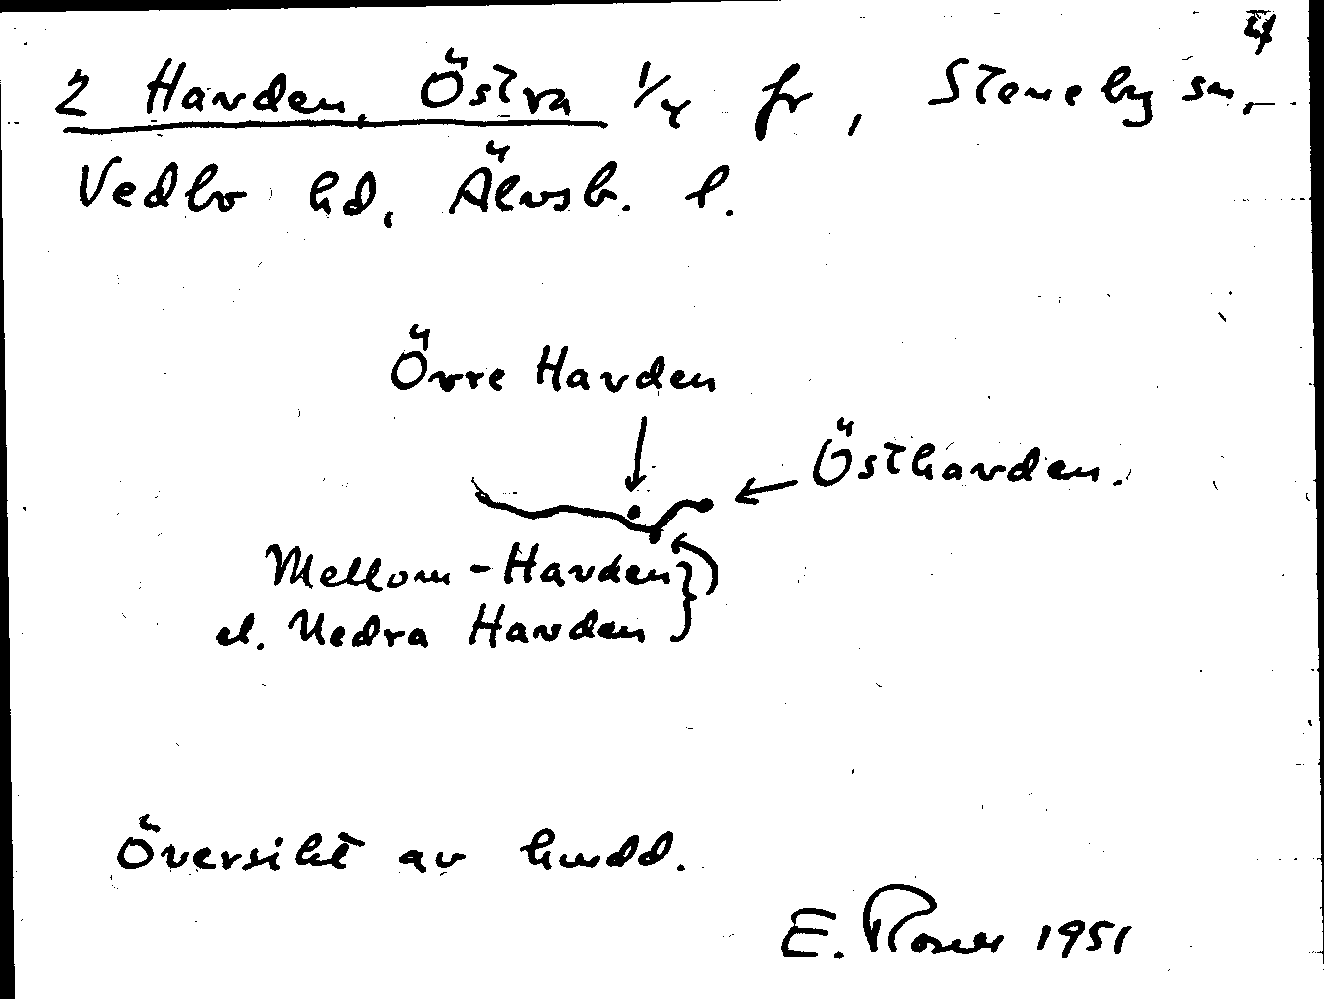 4
2 Havden, Östra 1/4 fr, Steneby sn,
Vedbo hd, Älvsb. l.
Övre Havden
Östhavden.
Mellom-Havden
el. Nedra Havden
Översikt av huvdd.
E. 1951